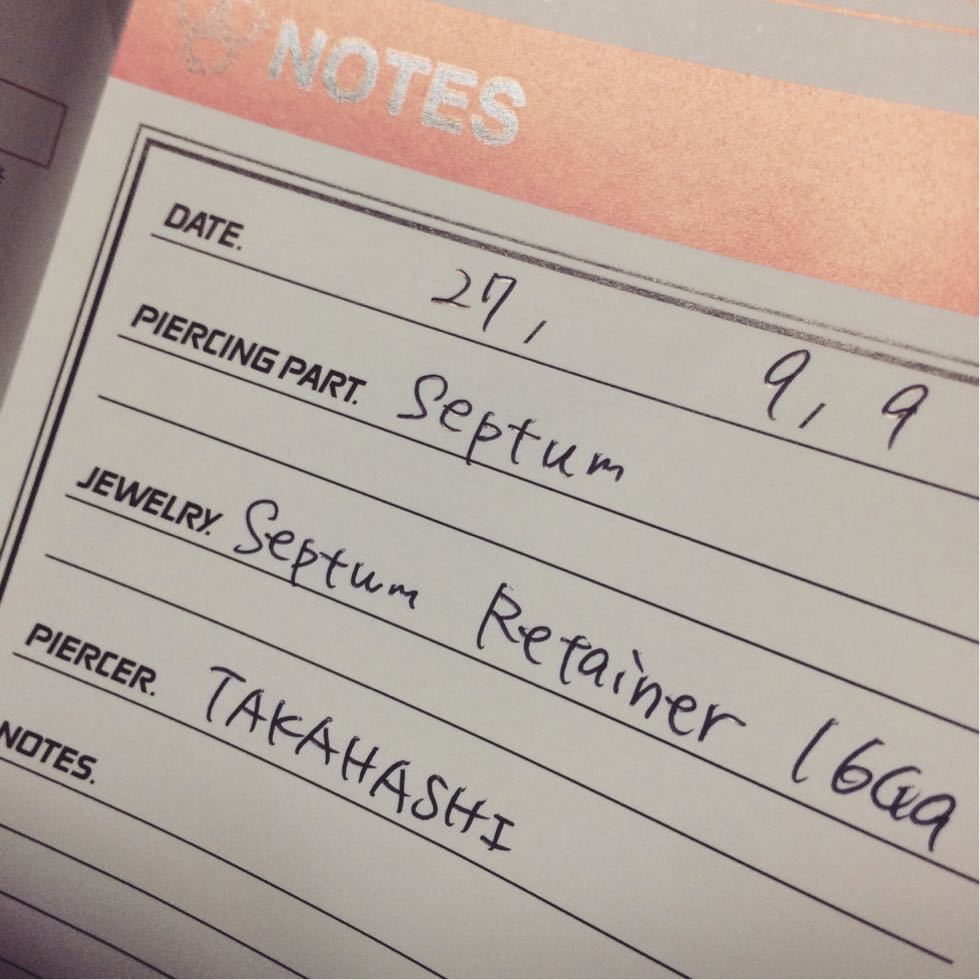 NOTES
DATE. 27, 9, 9
PIERCING PART. Septum
JEWELRY. Septum Retainer 16Ga
PIERCER. TAKAHASHI
NOTES.